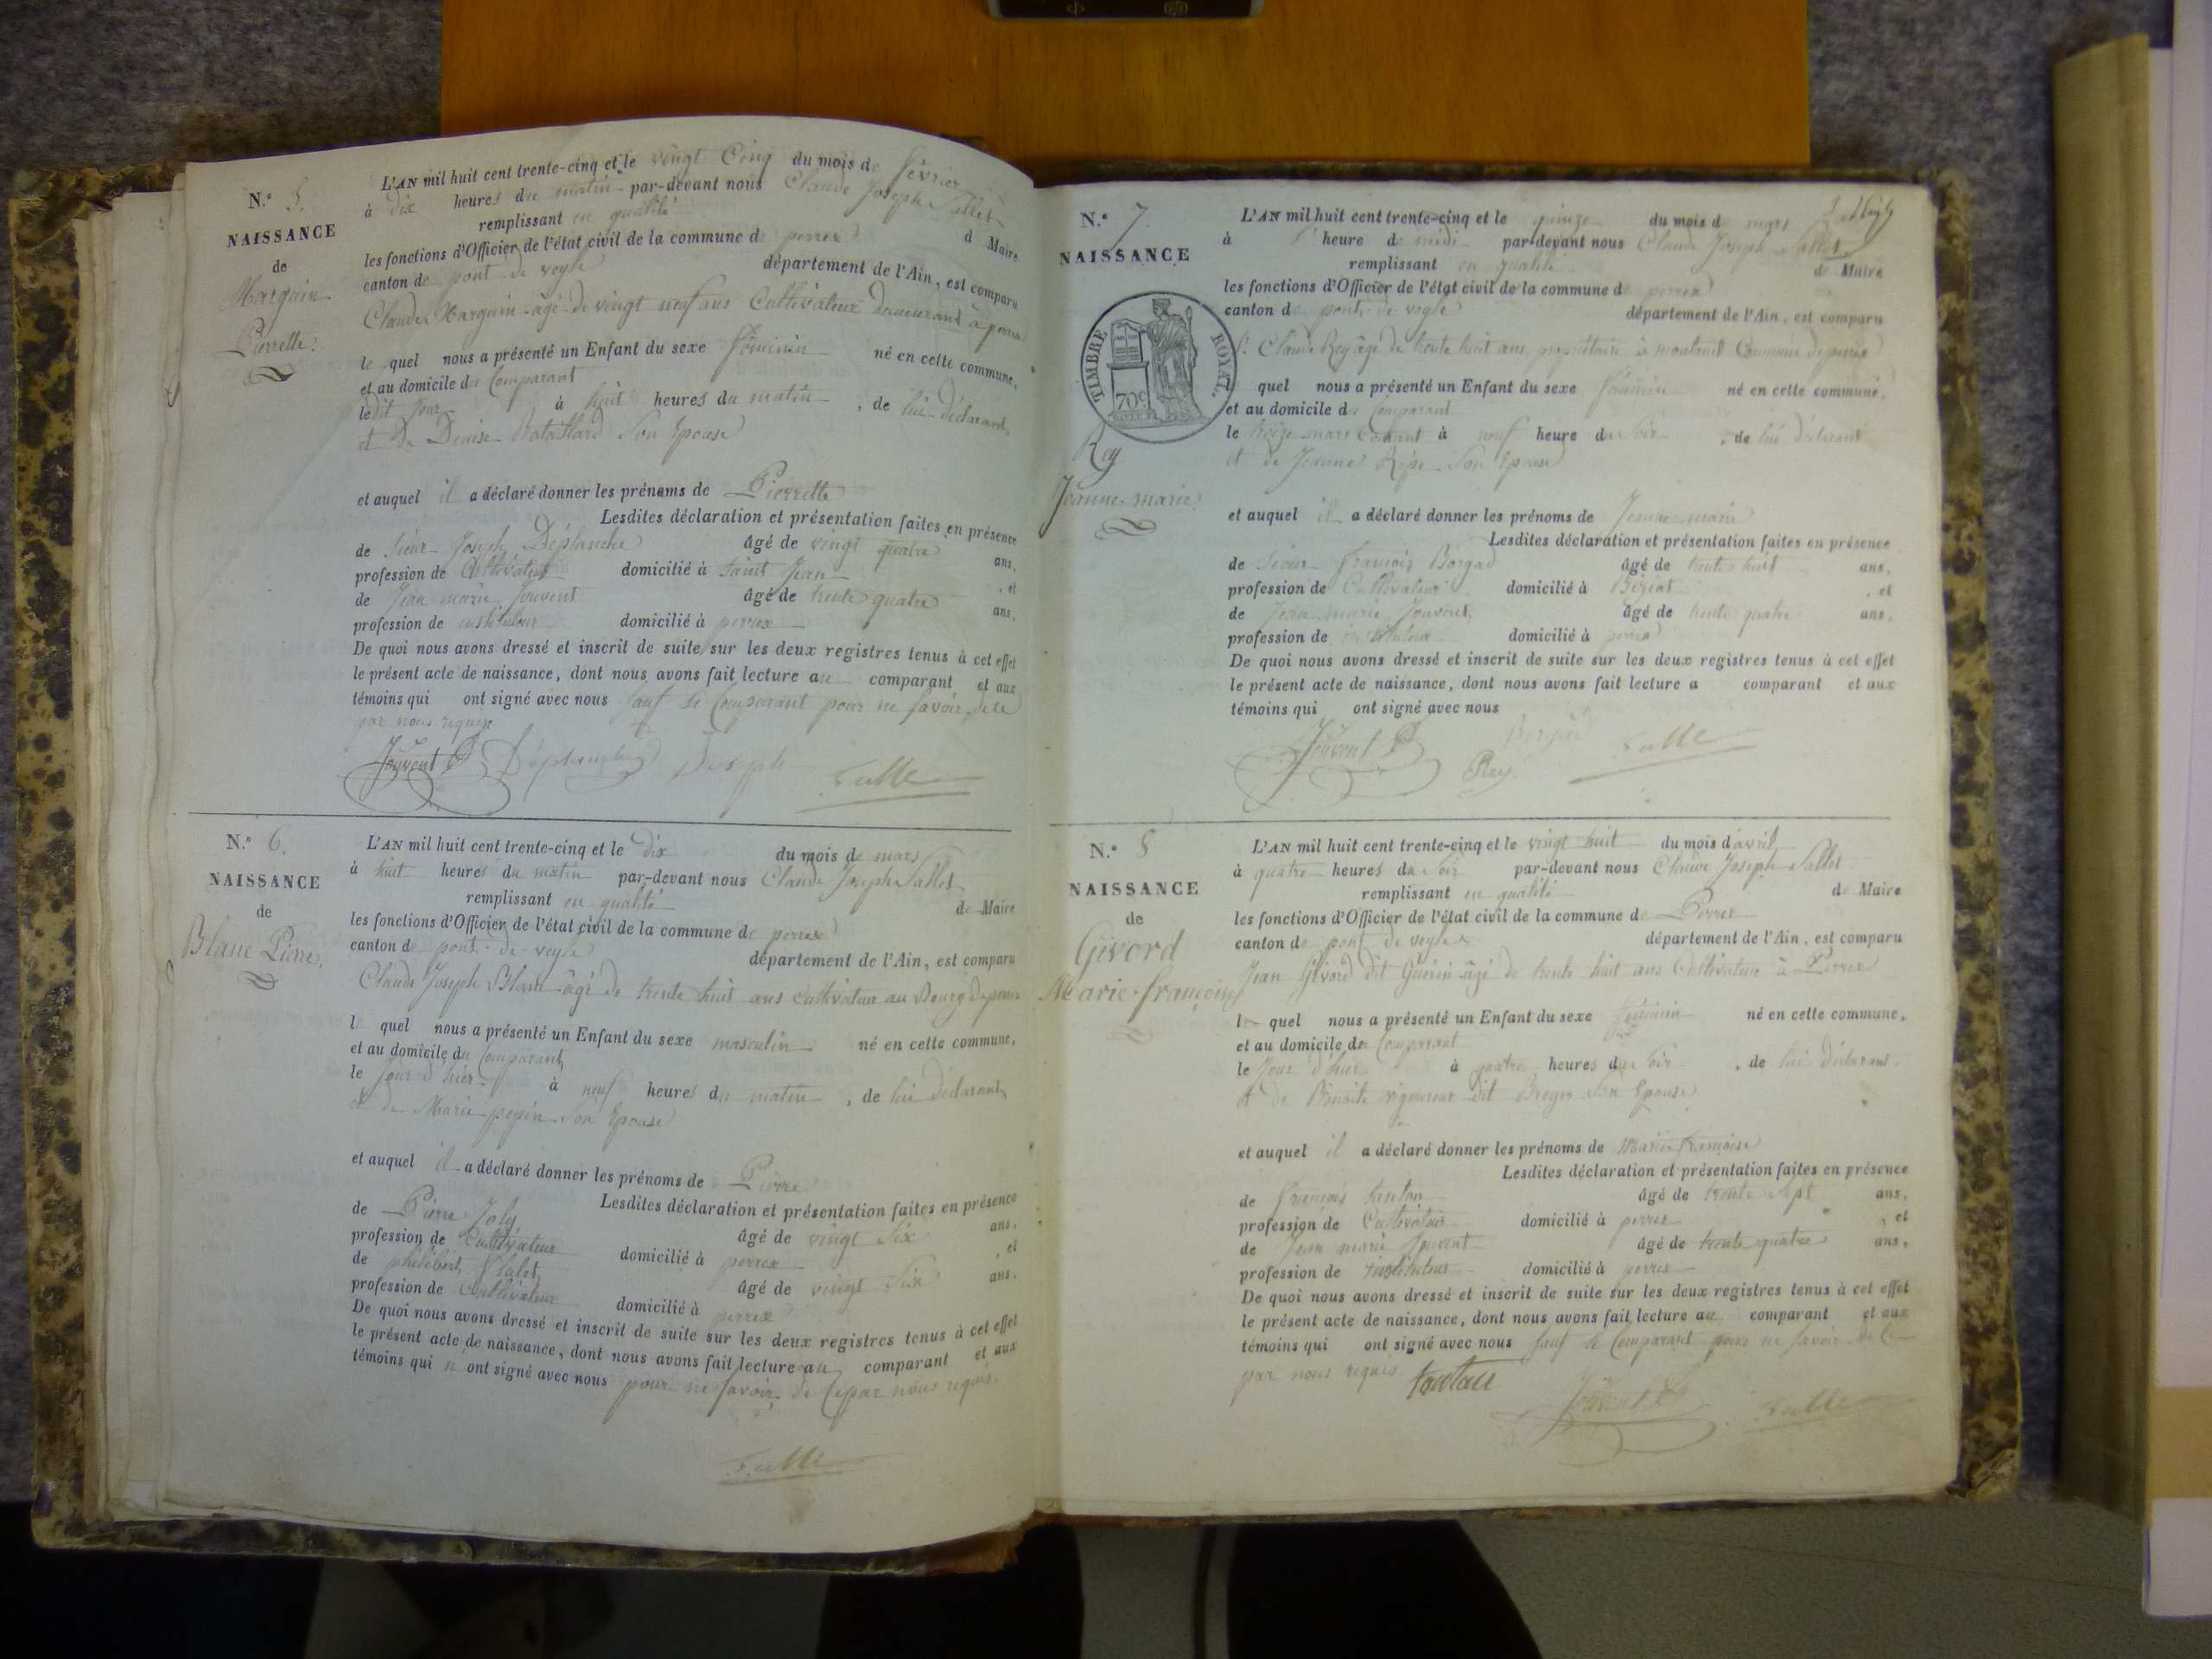 N.° 5.
NAISSANCE
de
Marguin
Pierrette.
L'AN mil huit cent trente-cinq et le vingt Cinq du mois de février
à dix heures du matin par-devant nous Claude Joseph Sallet
remplissant en qualité d Maire
les fonctions d'Officier de l'état civil de la commune de perrex
canton de pont-de-veyle département de l'Ain, est comparu
Claude Marguin âgé de vingt neuf ans Cultivateur demeurant à perrex
le quel nous a présenté un Enfant du sexe féminin né en cette commune,
et au domicile du Comparant
ledit jour à huit heures du matin, de lui déclarant,
et de Denise Son Epouse
et auquel il a déclaré donner les prénoms de Pierrette
Lesdites déclaration et présentation faites en présence
de Sieur Joseph Déplanche âgé de vingt quatre ans,
profession de Cultivateur domicilié à Saint Jean, et
de Jean marie Jouvent âgé de trente quatre ans,
profession de instituteur domicilié à perrex
De quoi nous avons dressé et inscrit de suite sur les deux registres tenus à cet effet
le présent acte de naissance, dont nous avons fait lecture au comparant et aux
témoins qui ont signé avec nous sauf le Comparant pour ne savoir, de ce
par nous requis
Jouvent Déplanche Joseph Sallet
N.° 6.
NAISSANCE
de
Blanc Pierre.
L'AN mil huit cent trente-cinq et le dix du mois de mars
à huit heures du matin par-devant nous Claude Joseph Sallet
remplissant en qualité de Maire
les fonctions d'Officier de l'état civil de la commune de perrex
canton de pont-de-veyle département de l'Ain, est comparu
Claude Joseph Blanc âgé de trente huit ans cultivateur au Bourg de perrex
l quel nous a présenté un Enfant du sexe masculin né en cette commune,
et au domicile du Comparant,
le jour d'hier à neuf heures du matin, de lui déclarant,
et de Marie pepin Son Epouse
et auquel il a déclaré donner les prénoms de Pierre
Lesdites déclaration et présentation faites en présence
de Pierre Joly âgé de vingt Six ans,
profession de Cultivateur domicilié à perrex, et
de philibert âgé de vingt Six ans,
profession de Cultivateur domicilié à perrex
De quoi nous avons dressé et inscrit de suite sur les deux registres tenus à cet effet
le présent acte de naissance, dont nous avons fait lecture au comparant et aux
témoins qui n ont signé avec nous pour ne savoir, de ce par nous requis.
Sallet
N.° 7
NAISSANCE
TIMBRE ROYAL.
70c
Rey
Jeanne-marie
L'AN mil huit cent trente-cinq et le quinze du mois d mars
à heure d midi par-devant nous Claude Joseph Sallet
remplissant en qualité de Maire
les fonctions d'Officier de l'état civil de la commune d perrex
canton de pont-de-veyle département de l'Ain, est comparu
Sr. Claude Rey âgé de trente huit ans, propriétaire à Commune de perrex
quel nous a présenté un Enfant du sexe féminin né en cette commune,
et au domicile du Comparant
le treize mars Courant à neuf heure du soir, de lui déclarant
et de Jeanne Son Epouse
et auquel il a déclaré donner les prénoms de Jeanne marie
Lesdites déclaration et présentation faites en présence
de Sieur françois Borgad âgé de trente huit ans,
profession de Cultivateur domicilié à Biziat, et
de Jean marie Jouvent, âgé de trente quatre ans,
profession de instituteur domicilié à perrex
De quoi nous avons dressé et inscrit de suite sur les deux registres tenus à cet effet
le présent acte de naissance, dont nous avons fait lecture a comparant et aux
témoins qui ont signé avec nous
Jouvent Rey Sallet
N.° 8
NAISSANCE
de
Givord
Marie-françoise
L'AN mil huit cent trente-cinq et le vingt huit du mois d'avril
à quatre heures du Soir par-devant nous Claude Joseph Sallet
remplissant en qualité de Maire
les fonctions d'Officier de l'état civil de la commune de Perrex
canton de pont de veyle département de l'Ain, est comparu
Jean Givord dit Guérin âgé de trente huit ans Cultivateur à Perrex
le quel nous a présenté un Enfant du sexe féminin né en cette commune,
et au domicile du Comparant
le Jour d'hier à quatre heures du Soir, de lui déclarant.
et de Benoite vigoureux dit Broyer Son Epouse
et auquel il a déclaré donner les prénoms de Marie françoise
Lesdites déclaration et présentation faites en présence
de françois tanton âgé de trente sept ans,
profession de Cultivateur domicilié à perrex, et
de Jean marie Jouvent âgé de trente quatre ans,
profession de instituteur domicilié à perrex
De quoi nous avons dressé et inscrit de suite sur les deux registres tenus à cet effet
le présent acte de naissance, dont nous avons fait lecture au comparant et aux
témoins qui ont signé avec nous sauf le Comparant pour ne savoir de ce
par nous requis
Jouvent Sallet